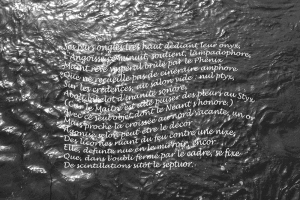 Ses purs ongles très haut dédiant leur onyx,
L'Angoisse, ce minuit, soutient, lampadophore,
Maint rêve vespéral brûlé par le Phénix
Que ne recueille pas de cinéraire amphore
Sur les crédences, au salon vide : nul ptyx,
Aboli bibelot d'inanité sonore,
(Car le Maître est allé puiser des pleurs au Styx
Avec ce seul objet dont le Néant s'honore.)
Mais proche la croisée au nord vacante, un or
Agonise selon peut-être le décor
Des licornes ruant du feu contre une nixe,
Elle, défunte nue en le miroir, encor
Que, dans l'oubli fermé par le cadre, se fixe
De scintillations sitôt le septuor.